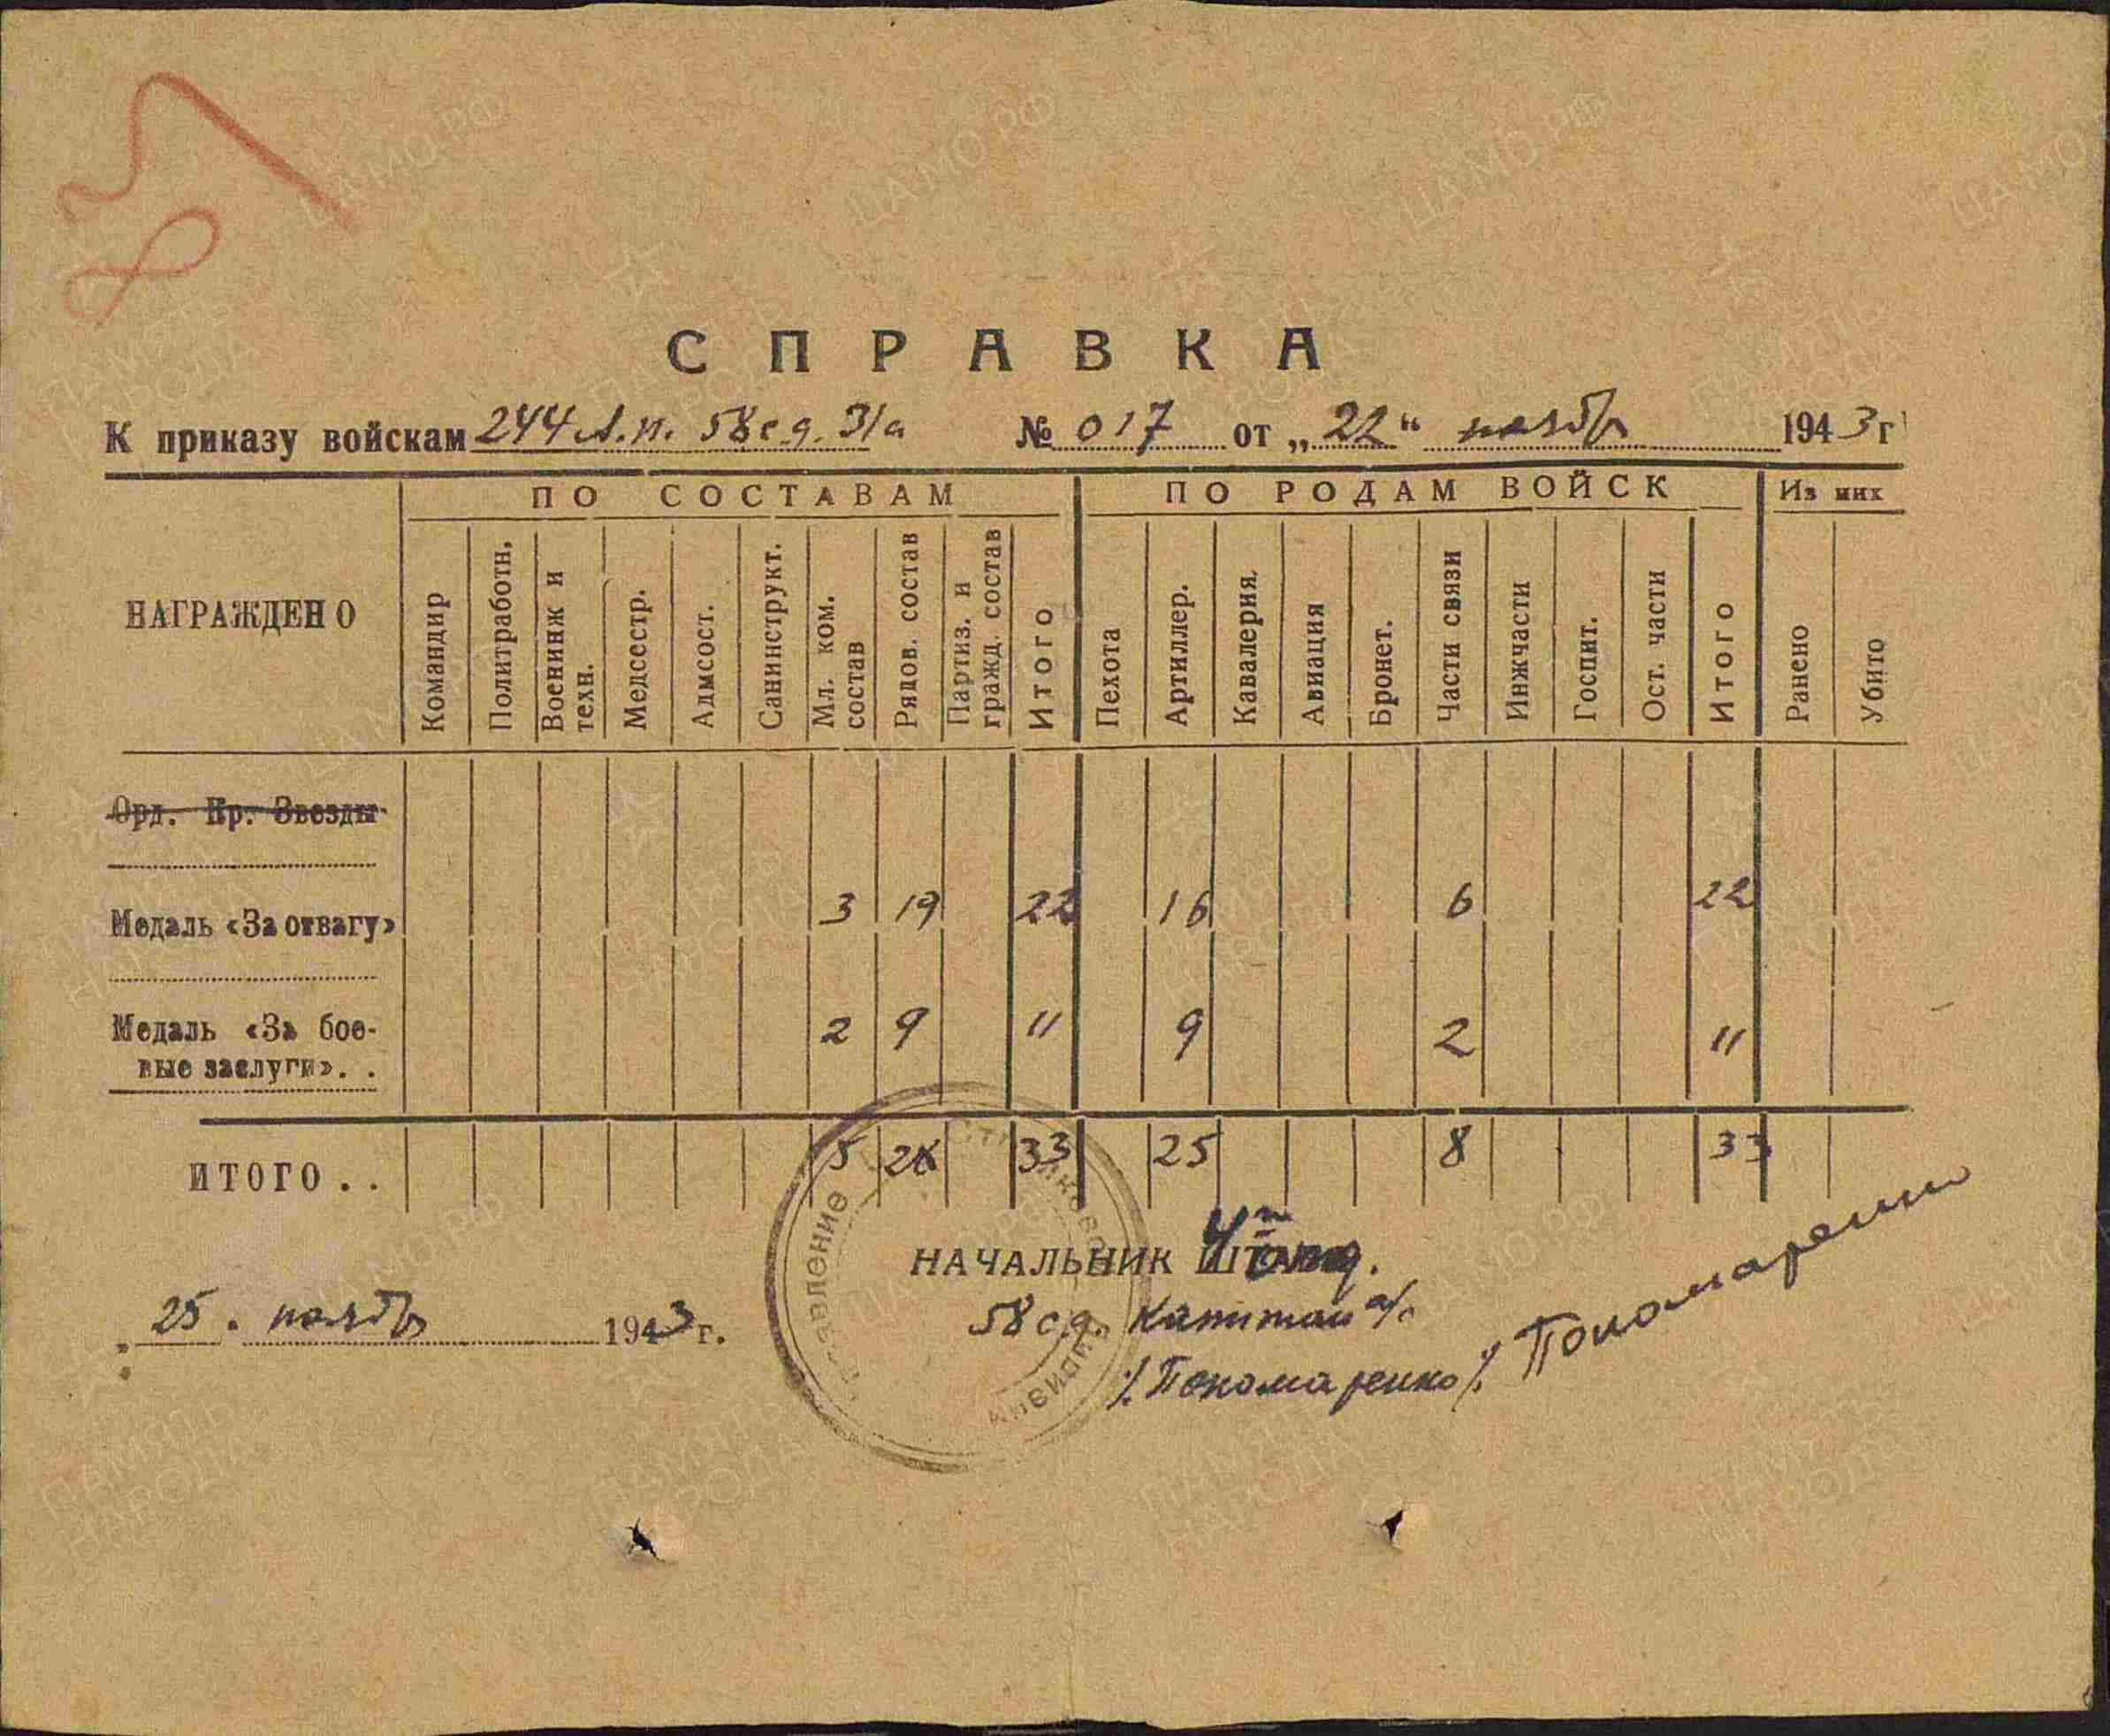 СПРАВКА
К приказу войскам 244 А.П. 58 с.д. 31а № 017 от „22“ ноябр 1943г
НАГРАЖДЕНО ПО СОСТАВАМ ПО РОДАМ ВОЙСК Из них
Командир Политработн. Военинж и техн. Медсестр. Адмсост. Санинструкт. Мл. ком. состав Рядов. состав Партиз. и гражд. состав Итого Пехота Артиллер. Кавалерия. Авиация Бронет. Части связи Инжчасти Госпит. Ост. части Итого Ранено Убито
Орд. Кр. Звезды
Медаль «За отвагу» 3 19 22 16 6 22
Медаль «За бое-
вые заслуги». . 2 9 11 9 2 11
ИТОГО . . 5 28 33 25 8 33
НАЧАЛЬНИК
25. ноябр 1943 г.
58 с.д. Капитан а/с
/Пономаренко/ Пономаренко